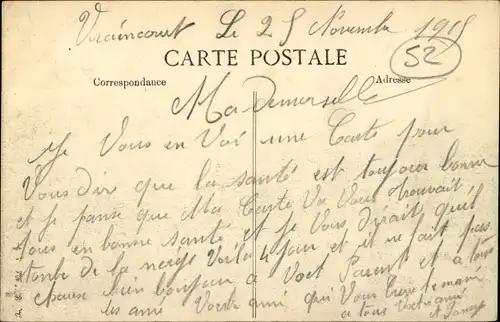 Vraincourt Le 25 Novembre 1915
52
CARTE POSTALE
Correspondance
Adresse
Mademoiselle
Je Vous en Voi une Carte pour
Vous dir que la santé est toujour bonne
et je panse que Ma Carte Va Vous trouvait
tous en bonne santé et je Vous dirait quil
tombe de la neige Voila 4 jour et il ne fait pas
chaux bien bonjour a Vost Parent et a tous
les ami Votre ami qui Vous
a tous